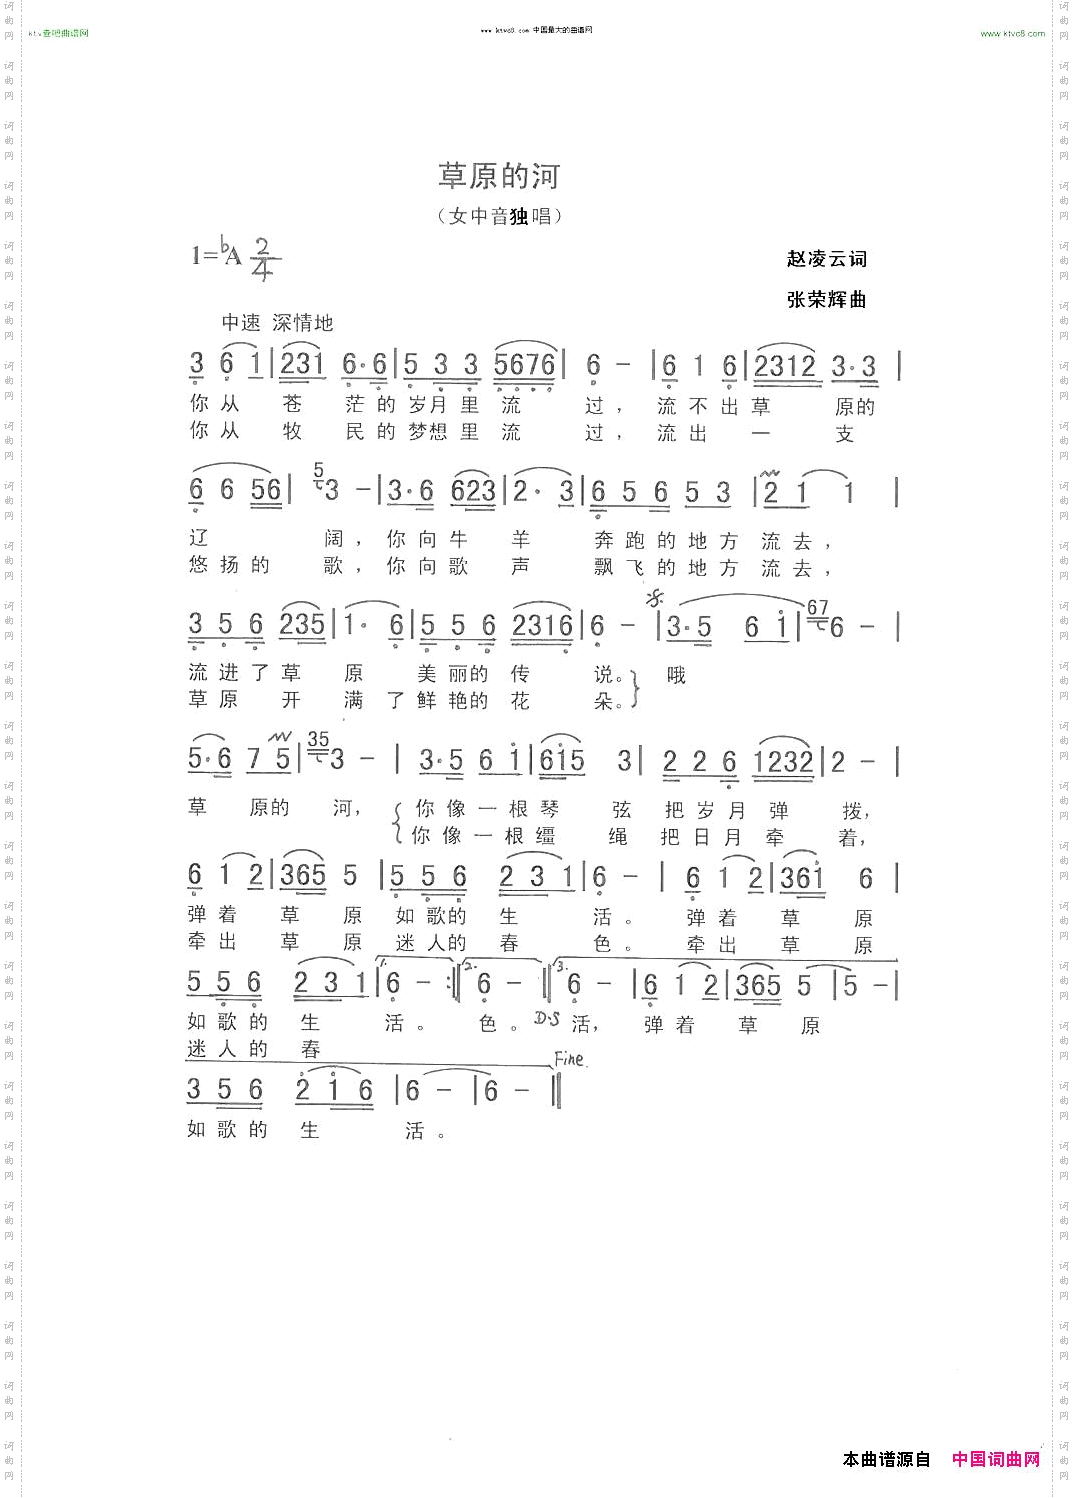 ktv查吧曲谱网 www.ktvc8.com 中国最大的曲谱网 www.ktvc8.com
草原的河
（女中音独唱）
1=bA 2/4 赵凌云词
张荣辉曲
中速 深情地
3 6 1 | 231 6·6 | 5 3 3 5676 | 6 - | 6 1 6 | 2312 3·3 |
你从 苍 茫的岁月里流 过，流不出草 原的
你从 牧 民的梦想里流 过，流出 一 支
6 6 56 | 5 3 - | 3·6 623 | 2· 3 | 6 5 6 5 3 | 2 1 1 |
辽 阔，你向牛 羊 奔跑的地方流去，
悠扬的 歌，你向歌 声 飘飞的地方流去，
3 5 6 235 | 1· 6 | 5 5 6 2316 | 6 - | 3·5 6 1 | 67 6 - |
流进了草 原 美丽的传 说。哦
草原 开 满了鲜艳的花 朵。
5·6 7 5 | 35 3 - | 3·5 6 1 | 615 3 | 2 2 6 1232 | 2 - |
草 原的 河，你像一根琴 弦把岁月弹 拨，
你像一根缰 绳把日月牵 着，
6 1 2 | 365 5 | 5 5 6 2 3 1 | 6 - | 6 1 2 | 361 6 |
弹着 草 原 如歌的 生 活。 弹着 草 原
牵出 草 原 迷人的 春 色。 牵出 草 原
5 5 6 2 3 1 | 1. 6 - :‖ 2. 6 - ‖ 3. 6 - | 6 1 2 | 365 5 | 5 - |
如歌的 生 活。 色。D.S 活， 弹着 草 原
迷人的 春
Fine.
3 5 6 2 1 6 | 6 - | 6 - ‖
如歌的 生 活。
本曲谱源自 中国词曲网